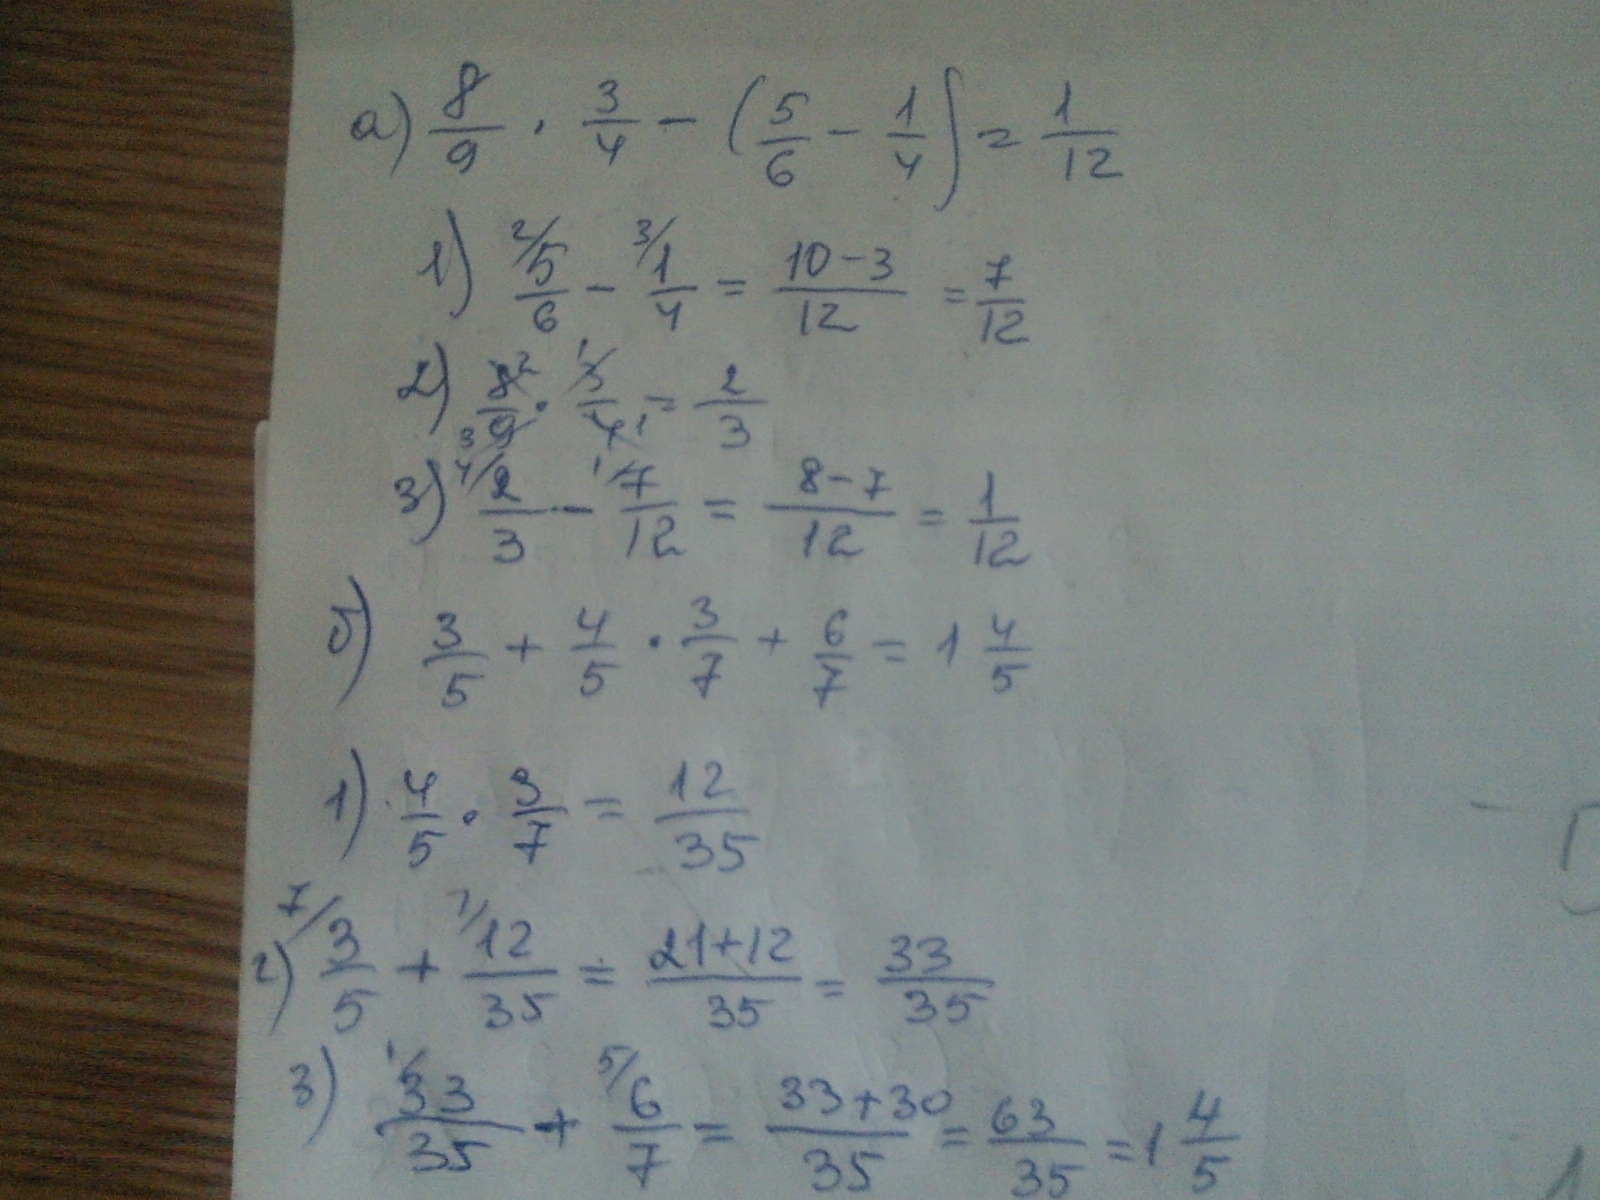 а) 8/9 · 3/4 − (5/6 − 1/4) = 1/12
1) 2/5/6 − 3/1/4 = 10−3/12 = 7/12
2) 8²/9 3 · 1 3/4 1 = 2/3
3) 4/2/3 − 1/7/12 = 8−7/12 = 1/12
б) 3/5 + 4/5 · 3/7 + 6/7 = 1 4/5
1) 4/5 · 3/7 = 12/35
2) 7/3/5 + 1/12/35 = 21+12/35 = 33/35
3) 1/33/35 + 5/6/7 = 33+30/35 = 63/35 = 1 4/5